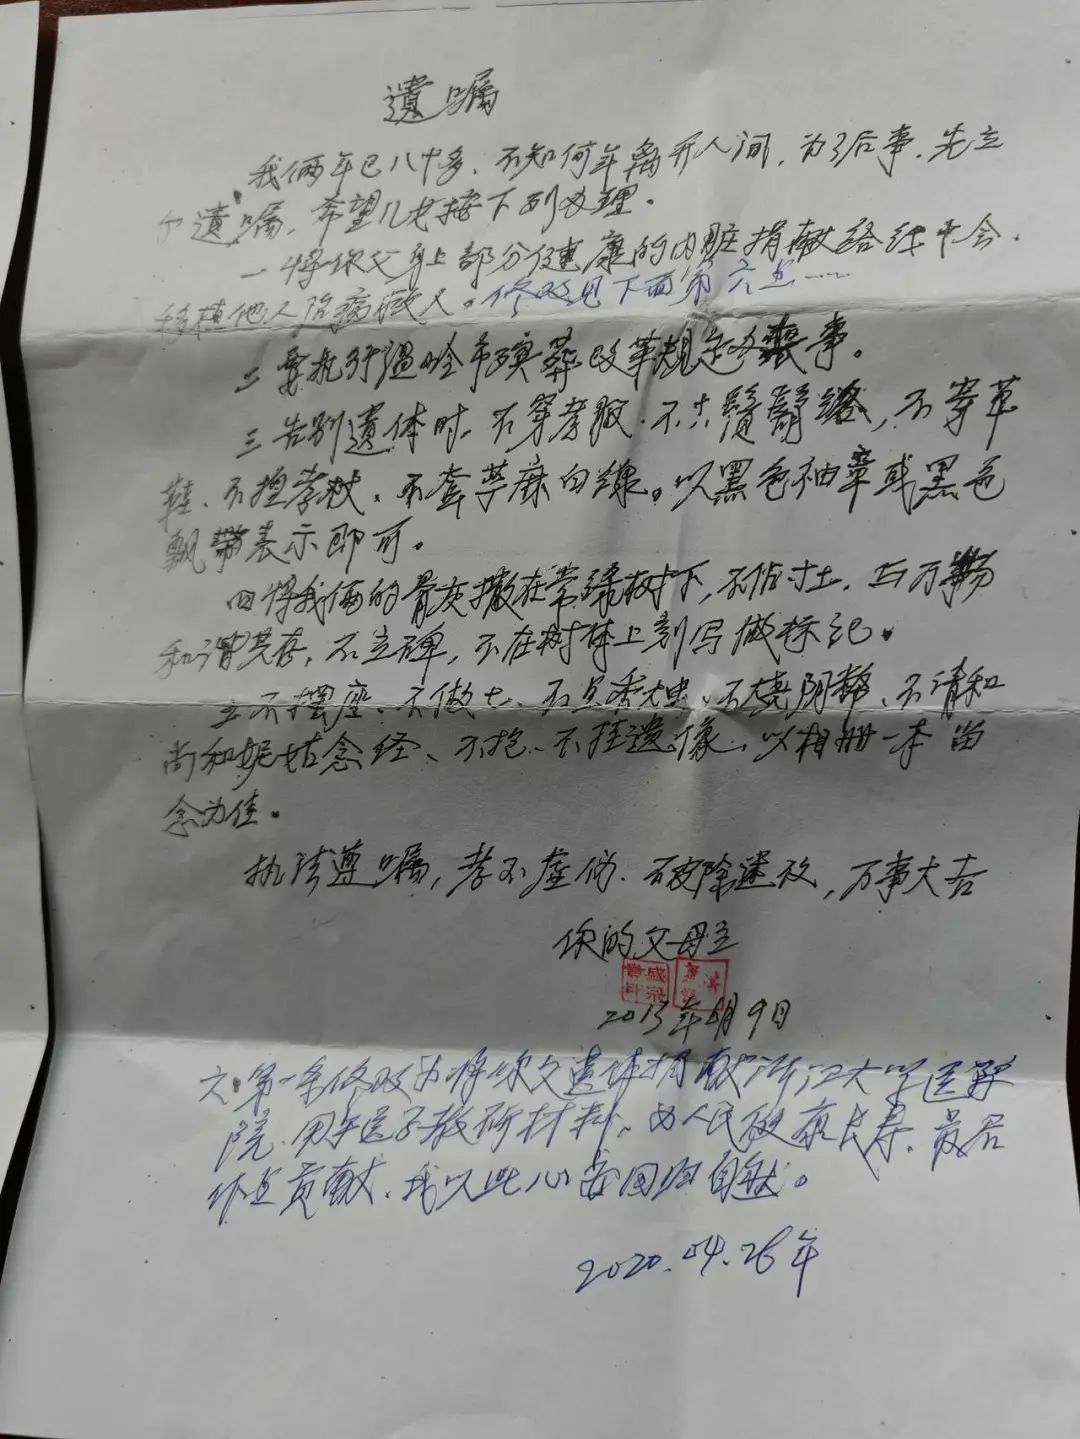 遺嘱
我俩年已八十多、不知何年离开人间，为了后事，先立
个遺嘱，希望儿女按下列办理。
一将你父身上部分健康的内脏捐献给红十会，
移植他人治病救人。修改见下面第六点……
二要执行温岭市殡葬改革规定办丧事。
三告别遺体时，不穿孝服，不，不穿草
鞋、不捏孝杖、不套苧麻白線。以黑色袖章或黑色
飘带表示即可。
四将我俩的骨灰撒在常绿树下，不佔寸土，与万物
和谐共存，不立碑，不在树体上刻写做标记。
五不摆座、不做七、不点香烛、不烧阴幣、不请和
尚和妮姑念经、不抱、不挂遗像、以相册一本留
念为佳。
执法遵嘱，孝不虚伪、破除迷，万事大吉
你的父母立
2013年月9日
六、第一条修改为将你父遗体捐献浙江大学医学
院、用于医学教研材料，为人民健康长寿、最后
作点贡献、我以此心安回归自然。
2020.04.26年